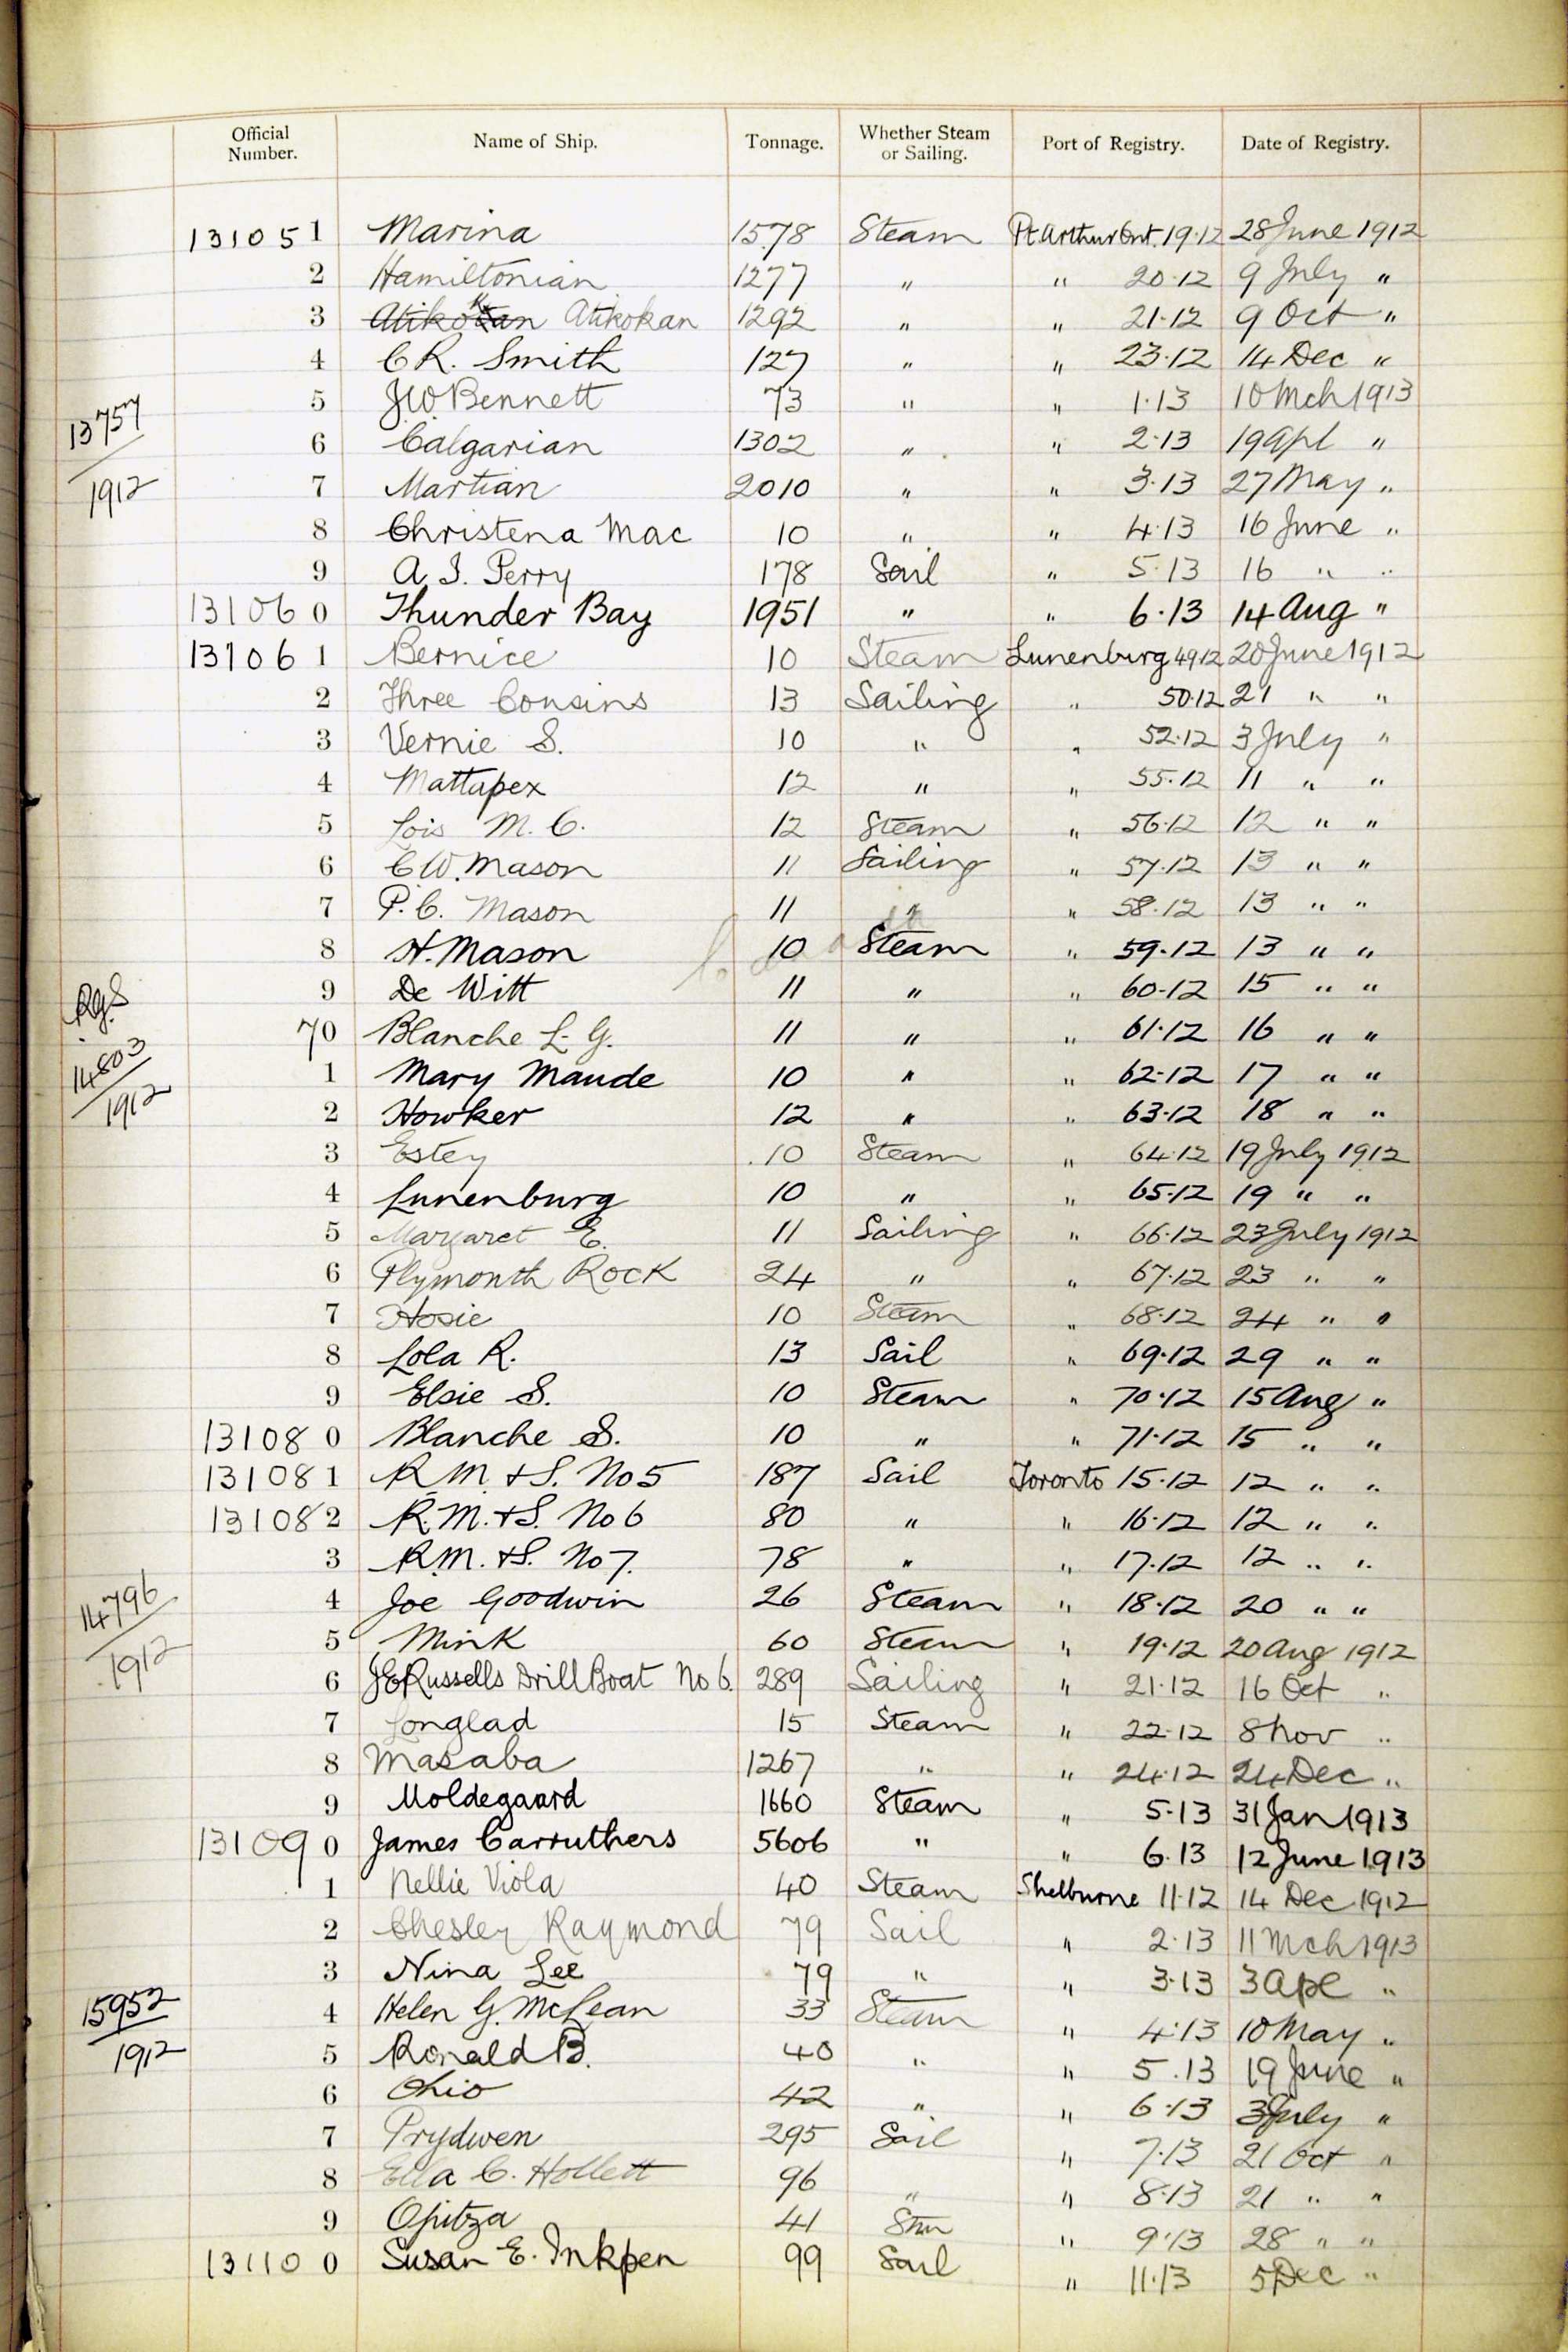 Official Number. Name of Ship. Tonnage. Whether Steam or Sailing. Port of Registry. Date of Registry.
131051 Marina 1578 Steam Pt Arthur Ont. 19·12 28 June 1912
2 Hamiltonian 1277 " " 20·12 9 July "
3 Atikokan Atikokan 1292 " " 21·12 9 Oct "
4 C R. Smith 127 " " 23·12 14 Dec "
5 J W Bennett 73 " " 1·13 10 Mch 1913
13757
6 Calgarian 1302 " " 2·13 19 Apl "
1912
7 Martian 2010 " " 3·13 27 May "
8 Christena Mac 10 " " 4·13 16 June "
9 A. I. Perry 178 Sail " 5·13 16 " "
131060 Thunder Bay 1951 " " 6·13 14 Aug "
131061 Bernice 10 Steam Lunenburg 49 12 20 June 1912
2 Three Cousins 13 Sailing " 50·12 21 " "
3 Vernie S. 10 " " 52·12 3 July "
4 Mattapex 12 " " 55·12 11 " "
5 Lois M. C. 12 Steam " 56·12 12 " "
6 C W. Mason 11 Sailing " 57·12 13 " "
7 P. C. Mason 11 " " 58·12 13 " "
8 H. Mason 10 Steam " 59·12 13 " "
9 De Witt 11 " " 60·12 15 " "
70 Blanche L. G. 11 " " 61·12 16 " "
14803
1 Mary Maude 10 " " 62·12 17 " "
1912
2 Howker 12 " " 63·12 18 " "
3 Estey 10 Steam " 64·12 19 July 1912
4 Lunenburg 10 " " 65·12 19 " "
5 Margaret E. 11 Sailing " 66·12 23 July 1912
6 Plymouth Rock 24 " " 67·12 23 " "
7 Hosie 10 Steam " 68·12 24 " "
8 Lola R. 13 Sail " 69·12 29 " "
9 Elsie S. 10 Steam " 70·12 15 Aug "
131080 Blanche S. 10 " " 71·12 15 " "
131081 R. M. & S. No 5 187 Sail Toronto 15·12 12 " "
131082 R. M. & S. No 6 80 " " 16·12 12 " "
3 R. M. & S. No 7. 78 " " 17·12 12 " "
14796
4 Joe Goodwin 26 Steam " 18·12 20 " "
5 Mink 60 Steam " 19·12 20 Aug 1912
1912
6 J E Russells Drill Boat No 6. 289 Sailing " 21·12 16 Oct "
7 Longlad 15 Steam " 22·12 8 Nov "
8 Masaba 1267 " " 24·12 24 Dec "
9 Moldegaard 1660 Steam " 5·13 31 Jan 1913
131090 James Carruthers 5606 " " 6·13 12 June 1913
1 Nellie Viola 40 Steam Shelburne 11·12 14 Dec 1912
2 Chesley Raymond 79 Sail " 2·13 11 Mch 1913
3 Nina Lee 79 " " 3·13 3 Apl "
15952
4 Helen G. McLean 33 Steam " 4·13 10 May "
1912
5 Ronald B. 40 " " 5·13 19 June "
6 Ohio 42 " " 6·13 3 July "
7 Prydwen 295 Sail " 7·13 21 Oct "
8 Ella C. Hollett 96 " " 8·13 21 " "
9 Opitza 41 Stm " 9·13 28 " "
131100 Susan E. Inkpen 99 Sail " 11·13 5 Dec "